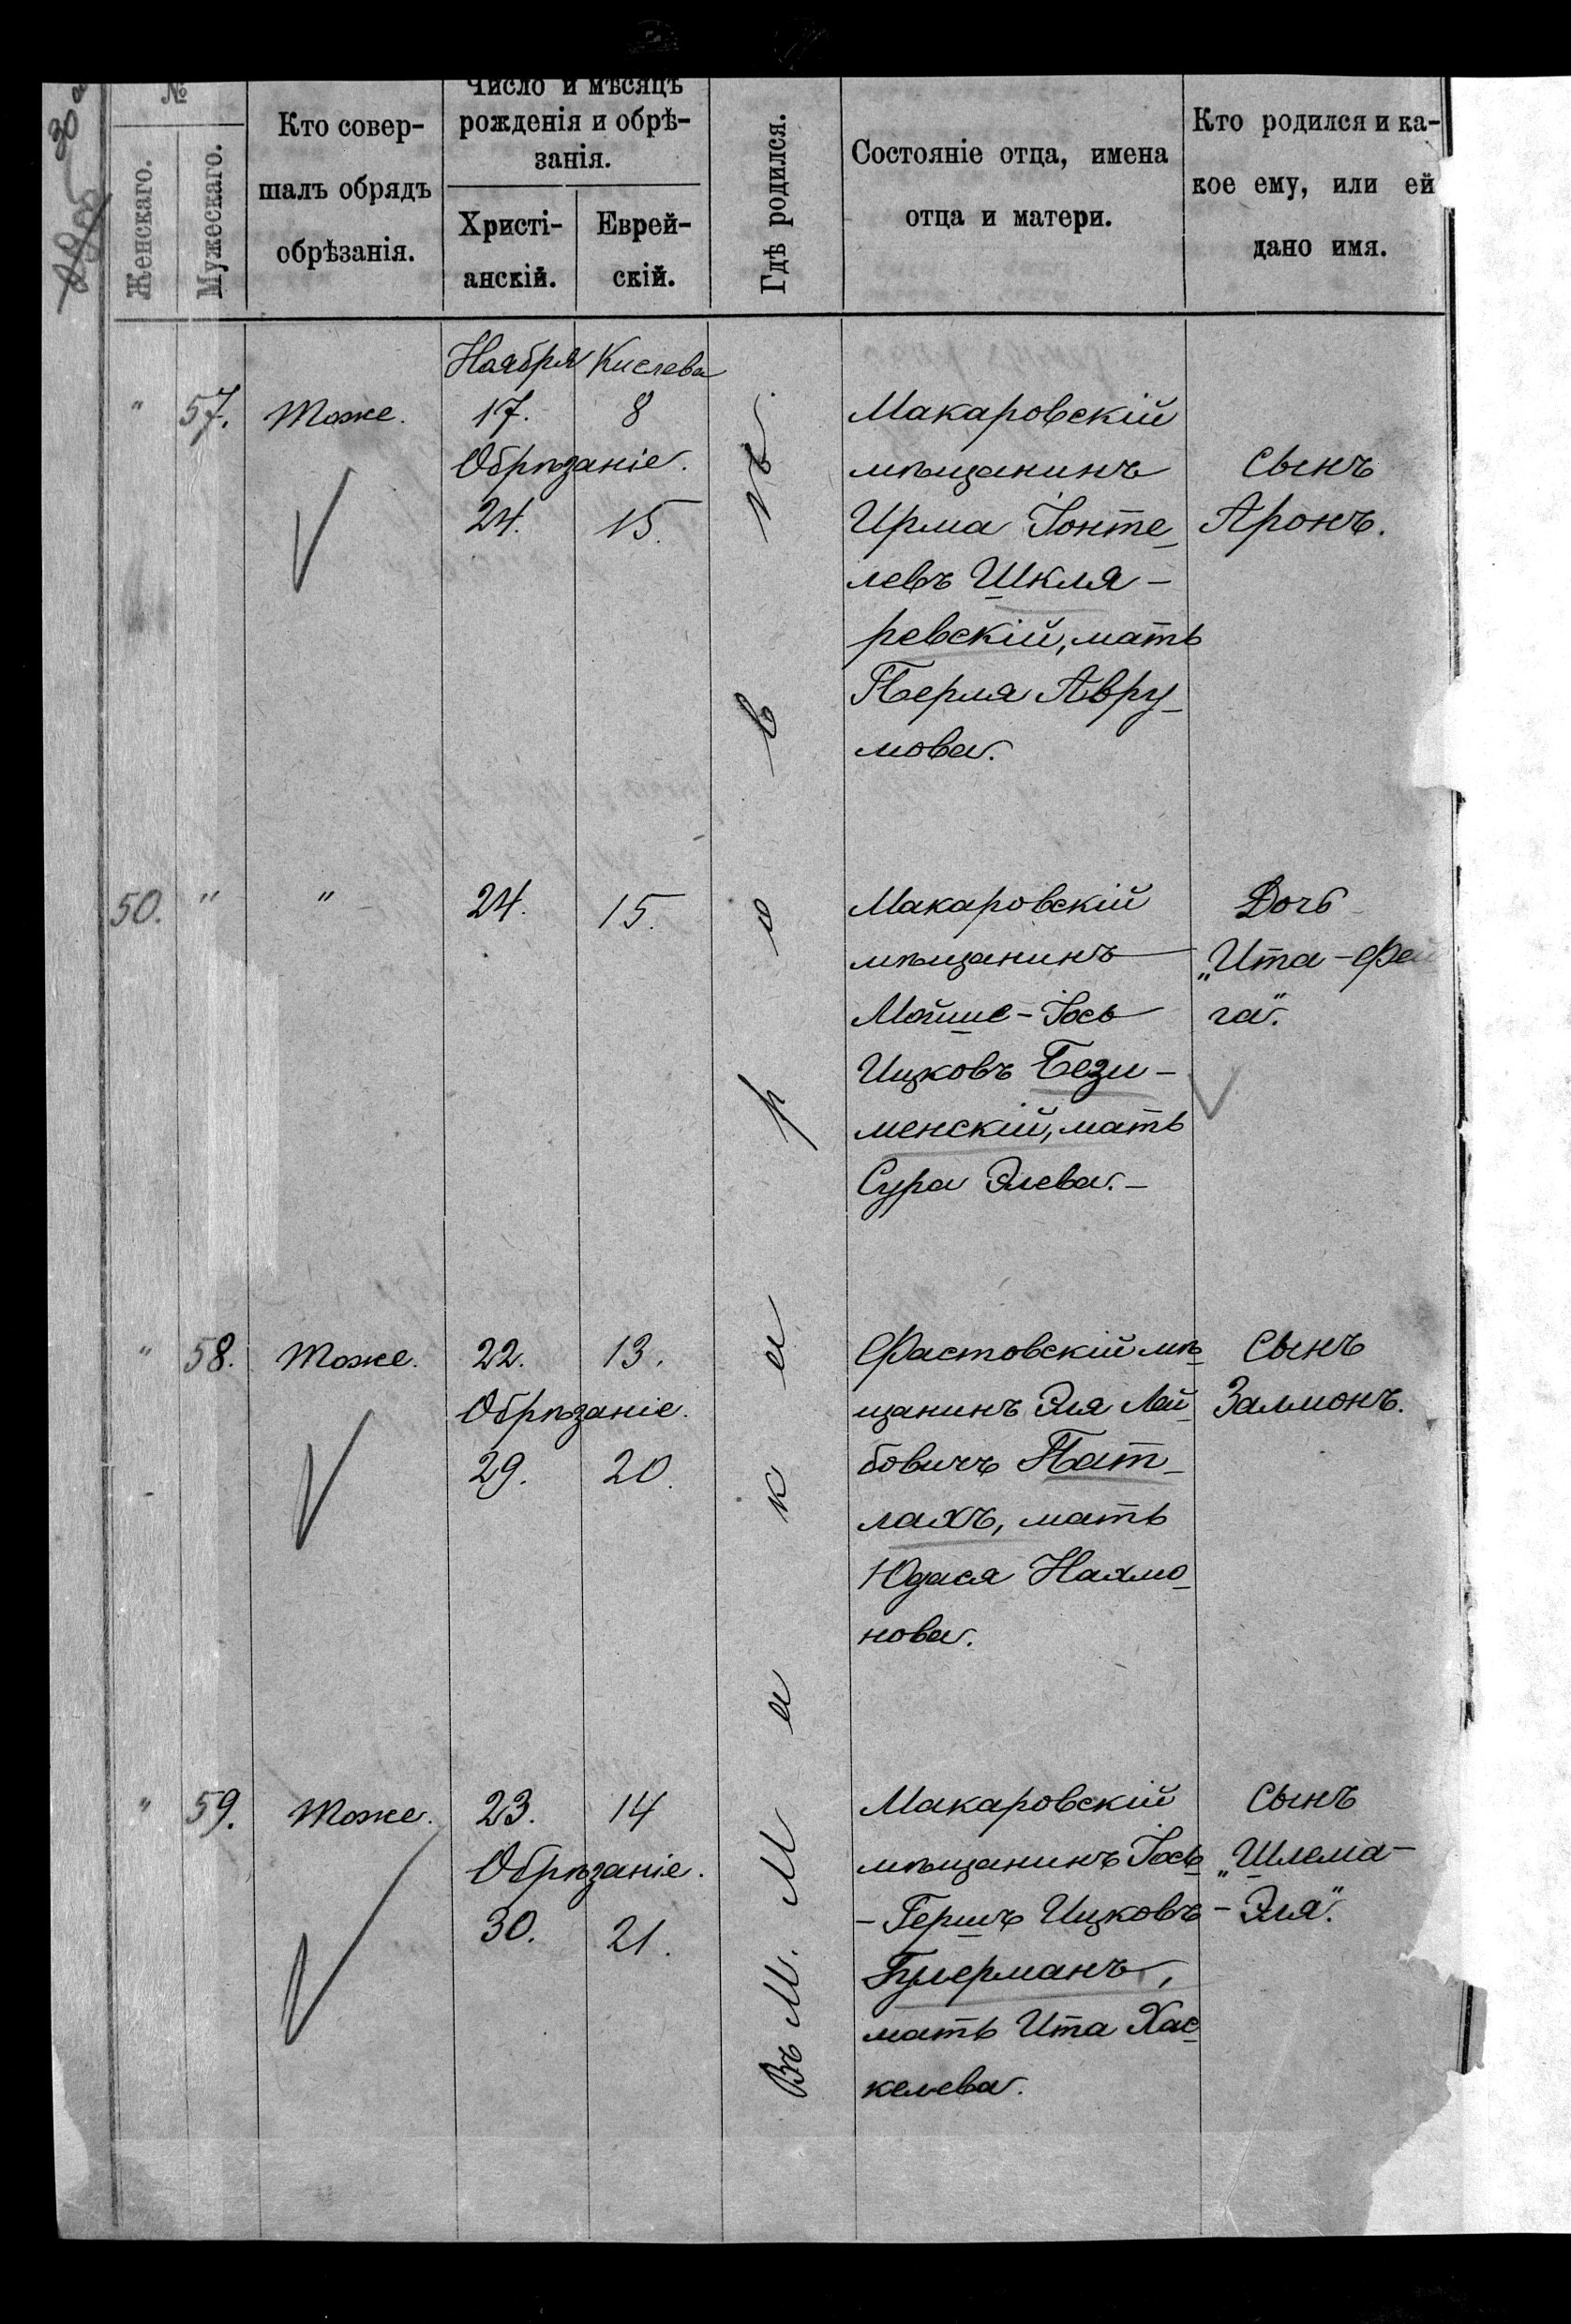 №
Женскаго.
Мужескаго.
Кто совер-
шалъ обрядъ
обрѣзанія.
Число и мѣсяцъ
рожденія и обрѣ-
занія.
Христі-
анскій.
Еврей-
скій.
Гдѣ родился.
Состояніе отца, имена
отца и матери.
Кто родился и ка-
кое ему, или ей
дано имя.
Въ М. Макаровѣ.
Ноября Кислева
" 57. Тоже. 17. 8
Обрѣзаніе.
24. 15.
Макаровскій
мѣщанинъ
Ирма Іонте-
левъ Шкля-
ревскій, мать
Перля Авру-
мова.
Сынъ
Аронъ.
50. " " 24. 15.
Макаровскій
мѣщанинъ
Мойше-Іось
Ицковъ Бези-
менскій, мать
Сура Элева.-
Дочь
„Ита-Фей
га".
" 58. Тоже. 22. 13.
Обрѣзаніе.
29. 20.
Фастовскій мѣ-
щанинъ Эля Лей-
бовичъ Пат-
лахъ, мать
Юдася Нахмо-
нова.
Сынъ
Залмонъ.
" 59. Тоже. 23. 14
Обрѣзаніе.
30. 21.
Макаровскій
мѣщанинъ Іось
-Гершъ Ицковъ
Гулерманъ,
мать Ита Хас-
келева.
Сынъ
„Шлема-
-Эля".